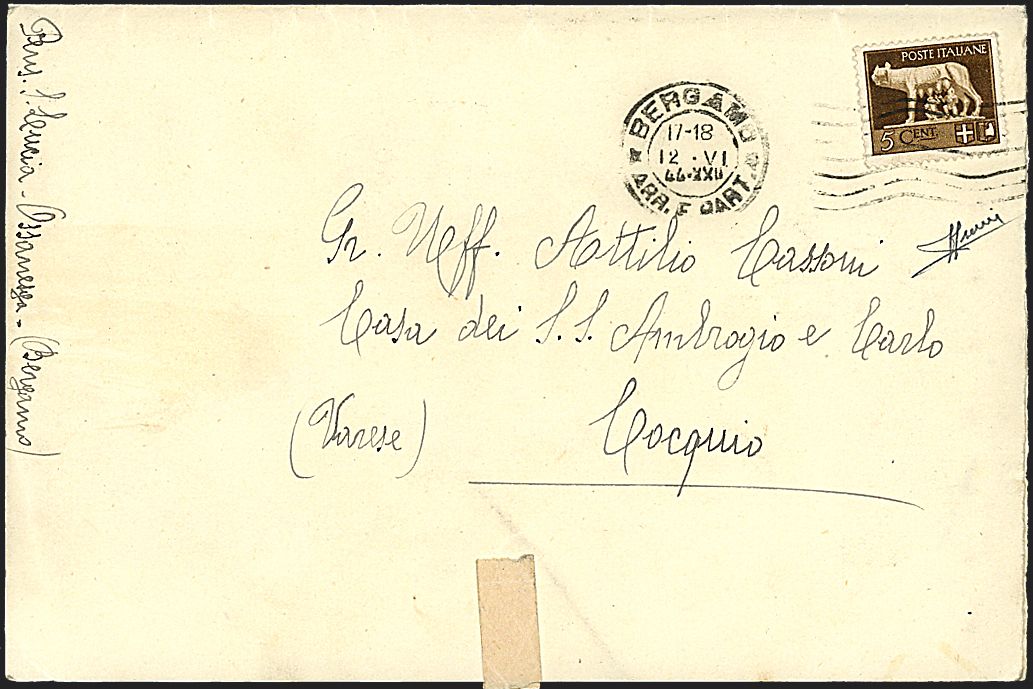 POSTE ITALIANE
5 CENT.
BERGAMO
17-18
12 · VI
44·XXII
ARR. E PART.
Gr. Uff. Attilio Cassoni
Casa dei S.S. Ambrogio e Carlo
(Varese) Cocquio
(Bergamo)